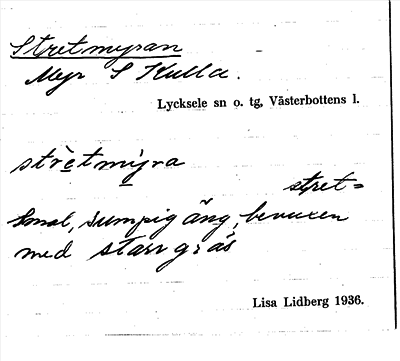 Stretmyran
Myr S Kulla.
Lycksele sn o. tg, Västerbottens l.
strètmỳra
stret=
Smal, sumpig äng, bevuxen
med starrgräs
Lisa Lidberg 1936.